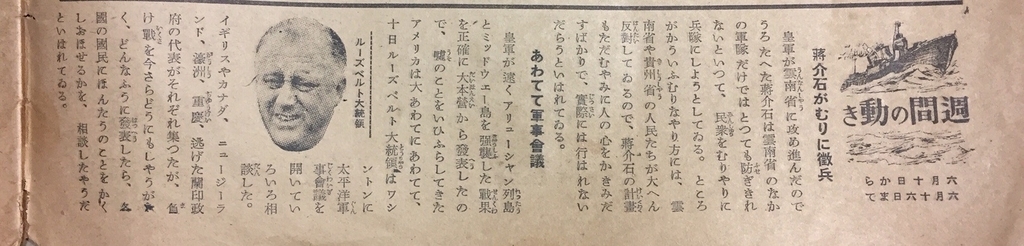 週間の動き
六月十日から
六月十六日まで
蔣介石がむりに徴兵
皇軍が雲南省に攻め進んだので
うろたへた蔣介石は雲南省のなか
の軍隊だけではとつても防ぎきれ
ないといつて、民衆をむりやりに
兵隊にしようとしてゐる。ところ
がかういふむりなやり方には、雲
南省や貴州省の人民たちが大へん
反對してゐるので、蔣介石の計畫
もただむやみに人の心をかきみだ
すばかりで、實際には行はれない
だらうといはれてゐる。
あわてて軍事會議
皇軍が遠くアリューシャン列島
とミッドウエー島を强襲した戰果
を正確に大本營から發表したの
で、嘘のことをいひふらしてきた
アメリカは大あわてにあわてて、
十日ルーズベルト大統領はワシ
ントンに
太平洋軍
事會議を
開いてい
ろいろ相
談した。
ルーズベルト大統領
イギリスやカナダ、ニュージーラ
ンド、濠洲、重慶、逃げた蘭印政
府の代表がそれぞれ集つたが、負
け戰を今さらどうにもしやうがな
く、どんなふうに發表したら、各
國の國民にほんたうのことをかく
しおほせるかを、相談したやうだ
といはれてゐる。